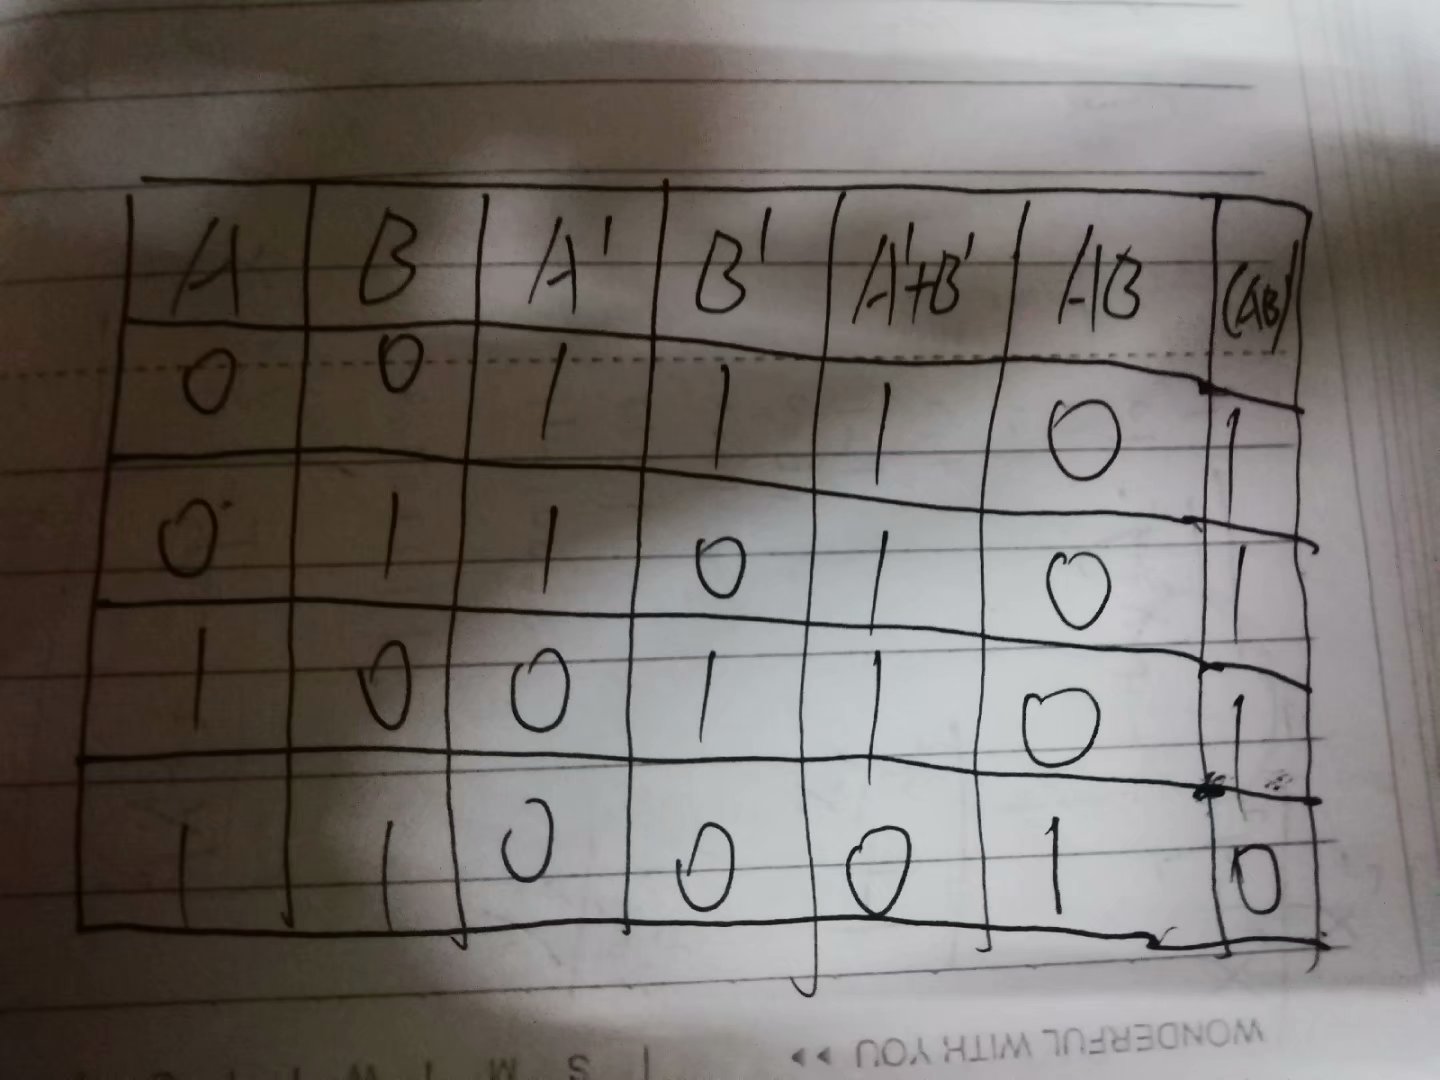 A B A' B' A'+B' AB (AB)'
0 0 1 1 1 0 1
0 1 1 0 1 0 1
1 0 0 1 1 0 1
1 1 0 0 0 1 0
WONDERFUL WITH YOU ››